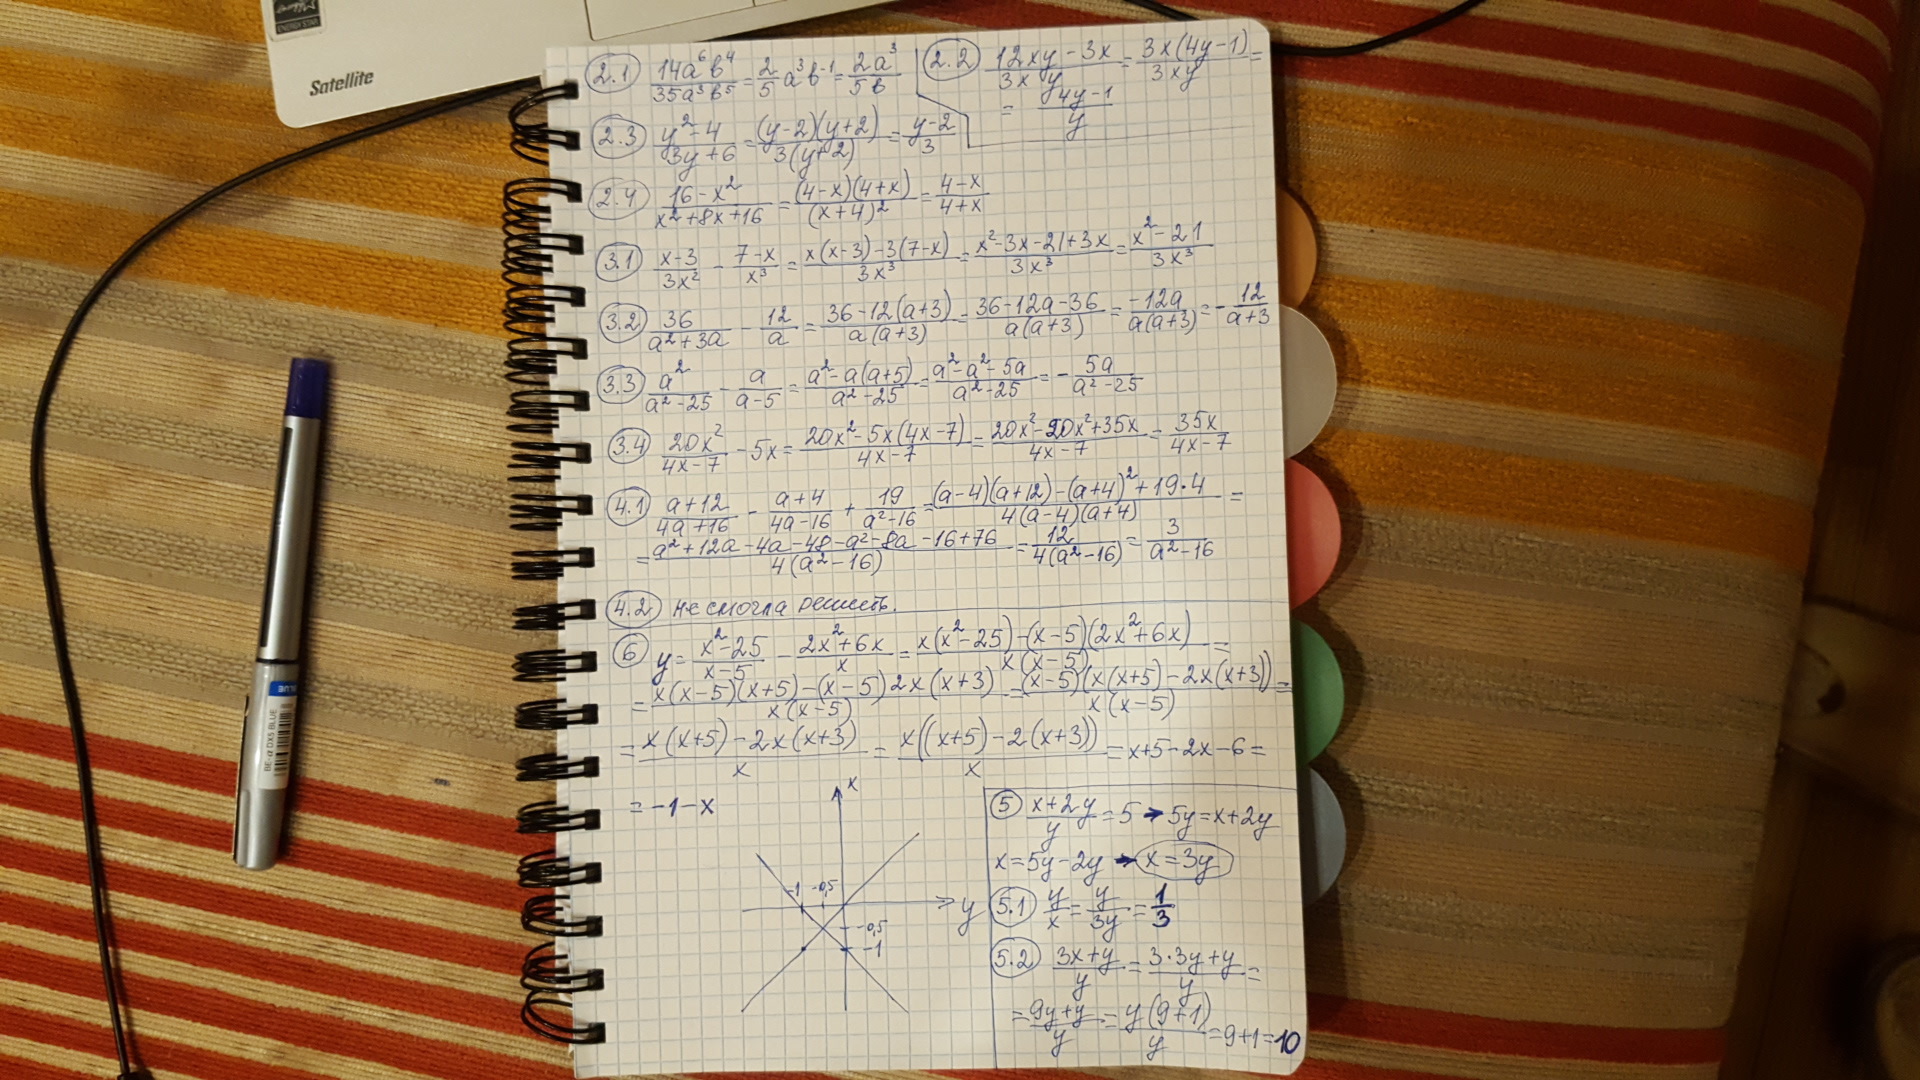 Satellite
2.1 14a⁶b⁴/35a³b⁵ = 2/5 a³b⁻¹ = 2a³/5b
2.2 (12xy-3x)/3xy = 3x(4y-1)/3xy =
= (4y-1)/y
2.3 (y²-4)/(3y+6) = (y-2)(y+2)/3(y+2) = (y-2)/3
2.4 (16-x²)/(x²+8x+16) = (4-x)(4+x)/(x+4)² = (4-x)/(4+x)
3.1 (x-3)/3x² - (7-x)/x³ = (x(x-3)-3(7-x))/3x³ = (x²-3x-21+3x)/3x³ = (x²-21)/3x³
3.2 36/(a²+3a) - 12/a = (36-12(a+3))/a(a+3) = (36-12a-36)/a(a+3) = -12a/a(a+3) = - 12/(a+3)
3.3 a²/(a²-25) - a/(a-5) = (a²-a(a+5))/(a²-25) = (a²-a²-5a)/(a²-25) = - 5a/(a²-25)
3.4 20x²/(4x-7) - 5x = (20x²-5x(4x-7))/(4x-7) = (20x²-20x²+35x)/(4x-7) = 35x/(4x-7)
4.1 (a+12)/(4a+16) - (a+4)/(4a-16) + 19/(a²-16) = ((a-4)(a+12)-(a+4)²+19·4)/4(a-4)(a+4) =
= (a²+12a-4a-48-a²-8a-16+76)/4(a²-16) = 12/4(a²-16) = 3/(a²-16)
4.2 не смогла решить.
6 y = (x²-25)/(x-5) - (2x²+6x)/x = (x(x²-25)-(x-5)(2x²+6x))/x(x-5) =
= (x(x-5)(x+5)-(x-5)2x(x+3))/x(x-5) = (x-5)(x(x+5)-2x(x+3))/x(x-5) =
= (x(x+5)-2x(x+3))/x = x((x+5)-2(x+3))/x = x+5-2x-6 =
= -1-x
x
-1 -0,5
y
-0,5
-1
5 (x+2y)/y = 5 → 5y=x+2y
x=5y-2y → x=3y
5.1 y/x = y/3y = 1/3
5.2 (3x+y)/y = (3·3y+y)/y =
= (9y+y)/y = y(9+1)/y = 9+1=10
BLUE
BE-α DX5 BLUE